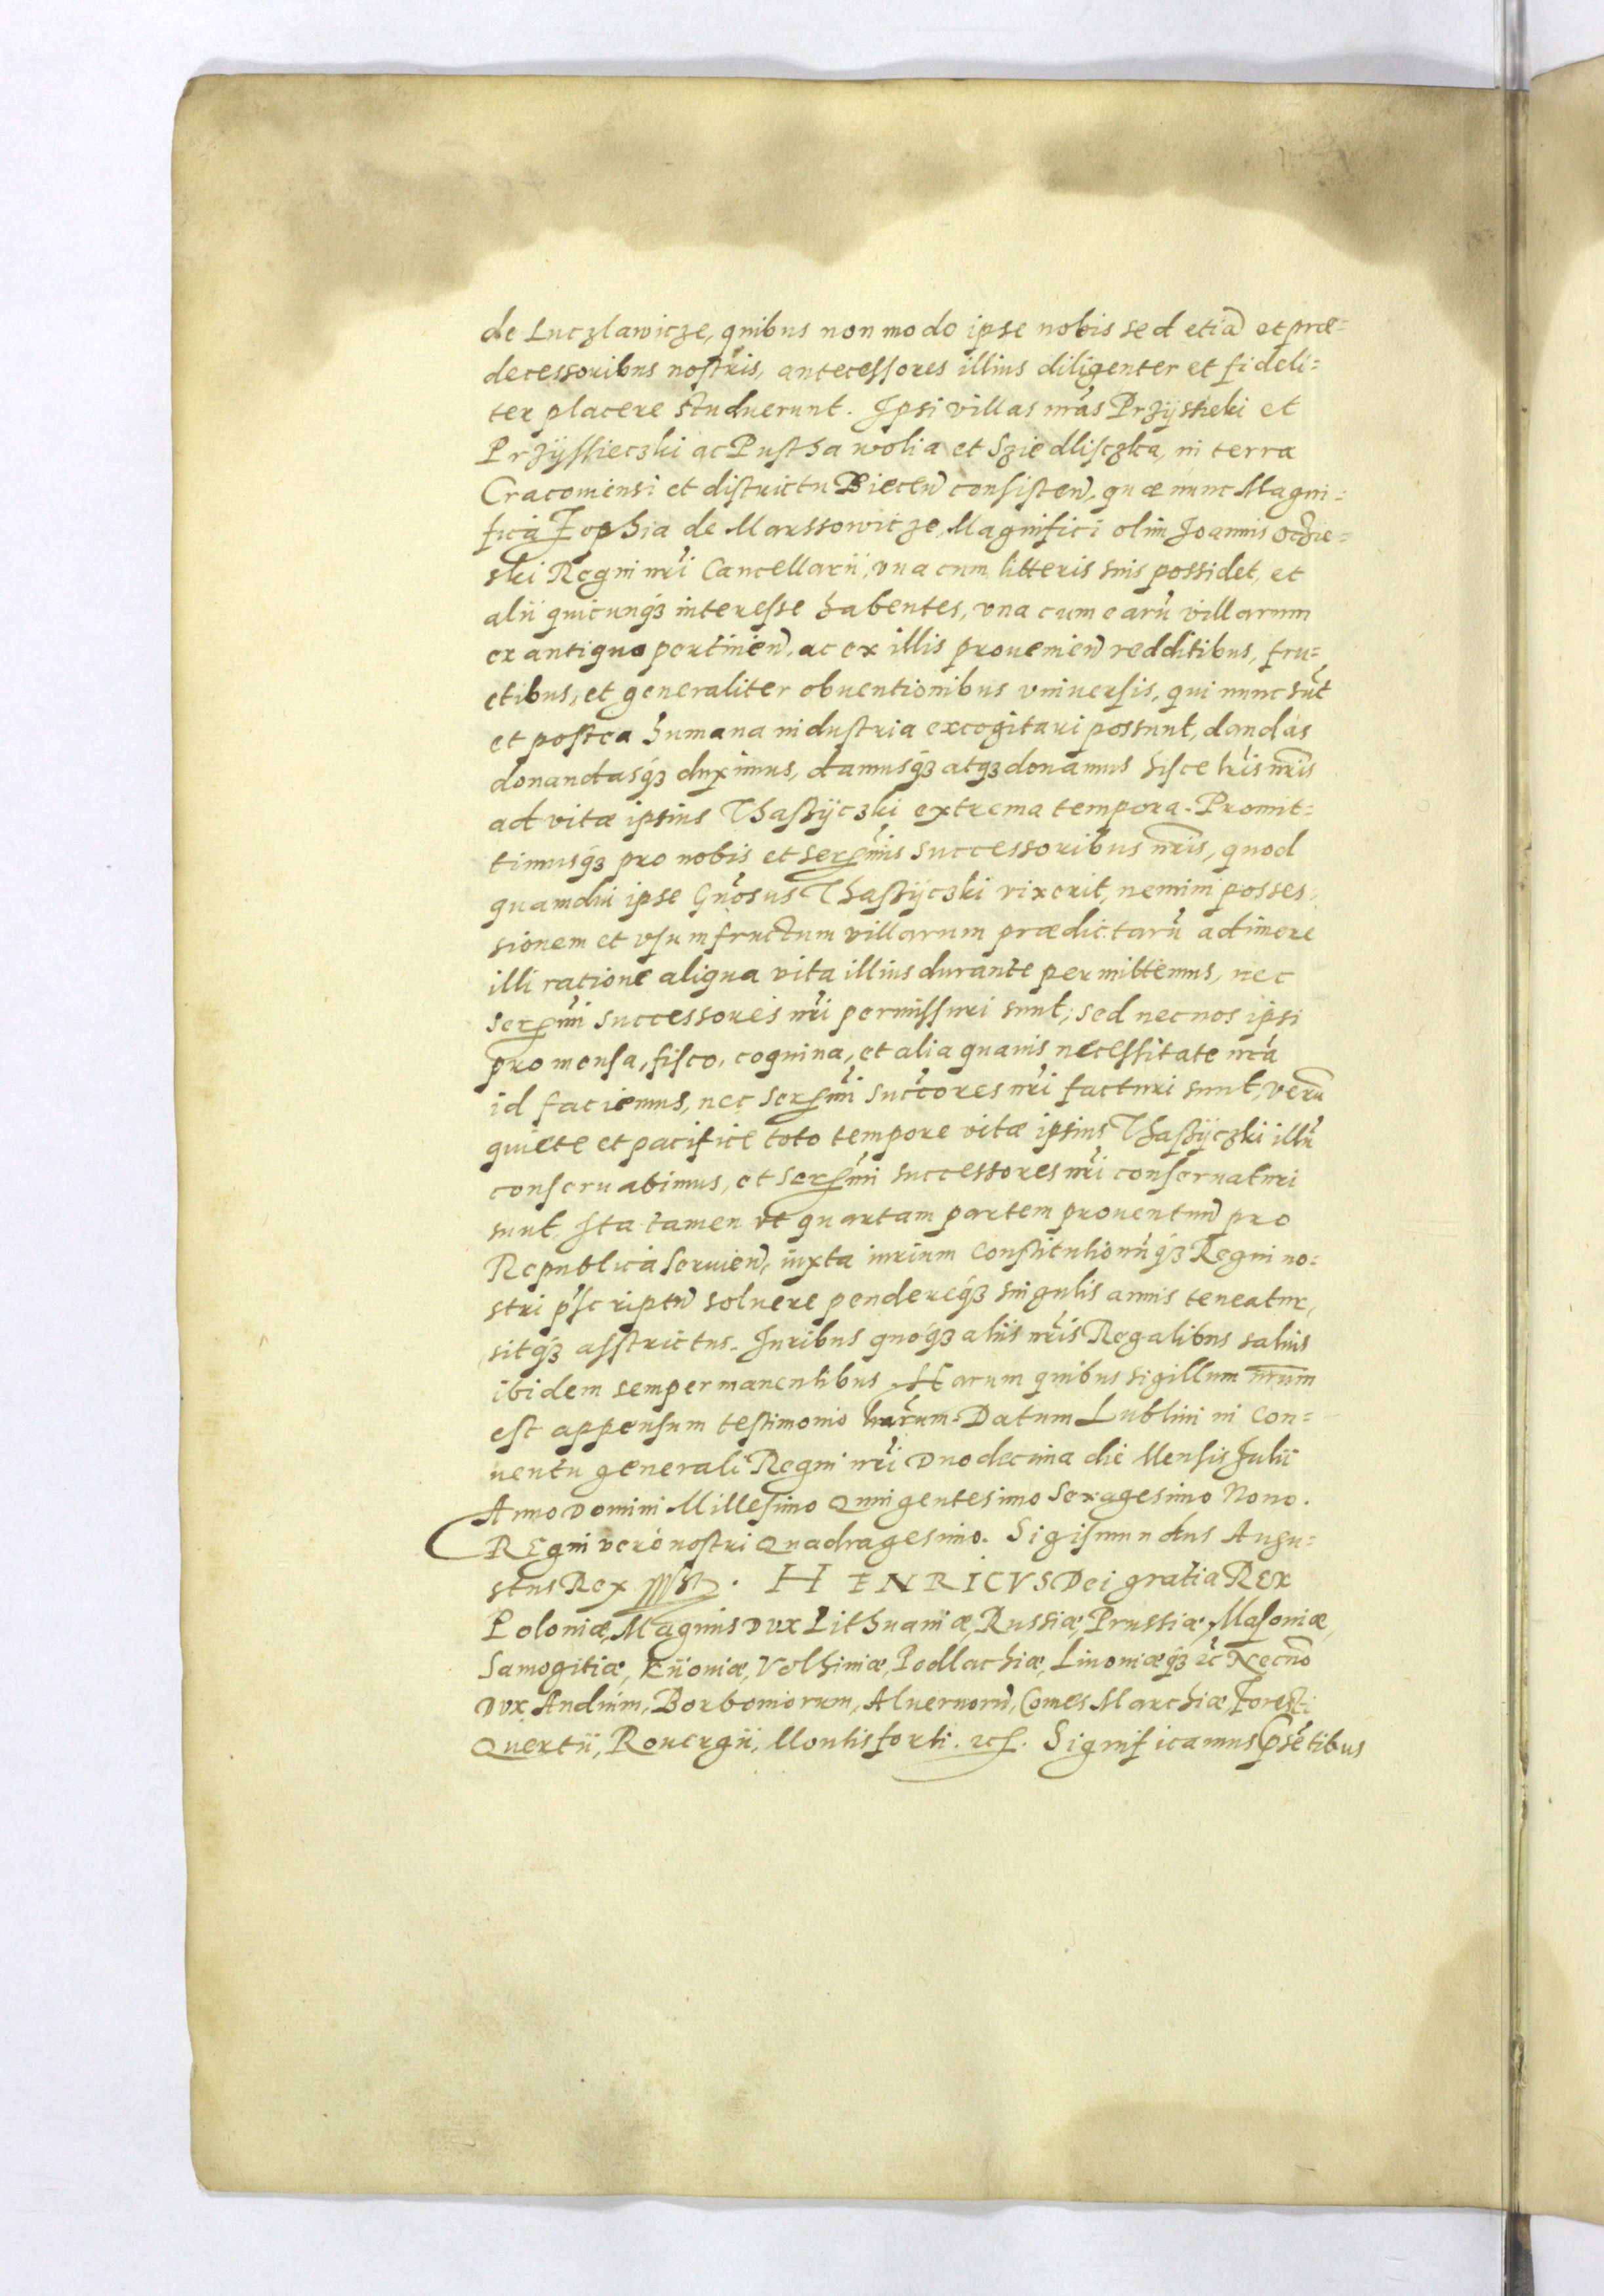 de Luczlawicze, quibus non modo ipse nobis sed etiã et præ=
decessoribus nostris, antecessores illius diligenter et fideli=
ter placere studuerunt. Ipsi villas nr̃as Przÿsheki et
Przÿssieczki ac Pustha wolia et Sziedlisczka, in terra
Cracouiensi et districtu Biecen̄ consisten̄, quæ nunc Magni=
fica Zophia de Marssowicze, Magnifici olim Joannis Oczie=
ski Regni nr̃i Cancellarii, vna cum litteris suis possidet, et
alii quicunqȝ interesse habentes, vna cum earũ villarum
ex antiquo pertinien̄, ac ex illis prouenien̄ redditibus, fru=
ctibus, et generaliter obuentionibus vniuersis, qui nunc sũt
et postea humana industria excogitari possunt, dandas
donandasqȝ duximus, damusqȝ atqȝ donamus hisce lr̃is nr̃is
ad vitæ ipsius Thaszÿczki extrema tempora. Promit=
timusqȝ pro nobis et Serm̃is Successoribus nr̃is, quod
quamdiu ipse Gn̄osus Thaszÿczki vixerit, nemini posses,
sionem et vsumfructum villarum prædictarũ adimere
illi ratione aliqua vita illius durante permittemus, nec
Serm̃i Successores nr̃i permissuri sunt, sed nec nos ipsi
pro mensa, fisco, coquina, et alia quauis necessitate nr̃a
id faciemus, nec Serm̃i Succ̃ores nr̃i facturi sunt, verũ
quiete et pacifice toto tempore vitæ ipsius Thaszÿczki illũ
conseruabimus, et Serm̃i successores nr̃i conseruaturi
sunt Ita tamen vt quartam partem prouentuũ pro
Republica seruien̄, iuxta iurium Constitutionũqȝ Regni no=
stri p̃scriptũ soluere pendereqȝ singulis annis teneatur,
sitqȝ asstrictus. Iuribus quoqȝ aliis nr̃is Regalibus saluis
ibidem semper manentibus Harum quibus sigillum nr̃um
est appensum testimonio harum. Datum Lublini in Con=
uentu generali Regni nr̃i Duodecima die Mensis Julii
Anno Domini Millesimo Quingentesimo Sexagesimo Nono.
REgni vero nostri Quadragesimo. Sigismundus Augu=
stus Rex. HENRICVS Dei gratia Rex
Poloniæ, Magnus Dux Lithuaniæ, Russiæ, Prussiæ, Masouiæ,
Samogitiæ, Kiiouiæ, Volhiniæ, Podlachiæ, Liuoniæqȝ ꝛc Necnõ
Dux Andium, Borboniorum, Aluernorũ, Comes Marchiæ Foresti
Quertii, Rouergii, Montisforti. ꝛc. Significamus p̃sẽtibus